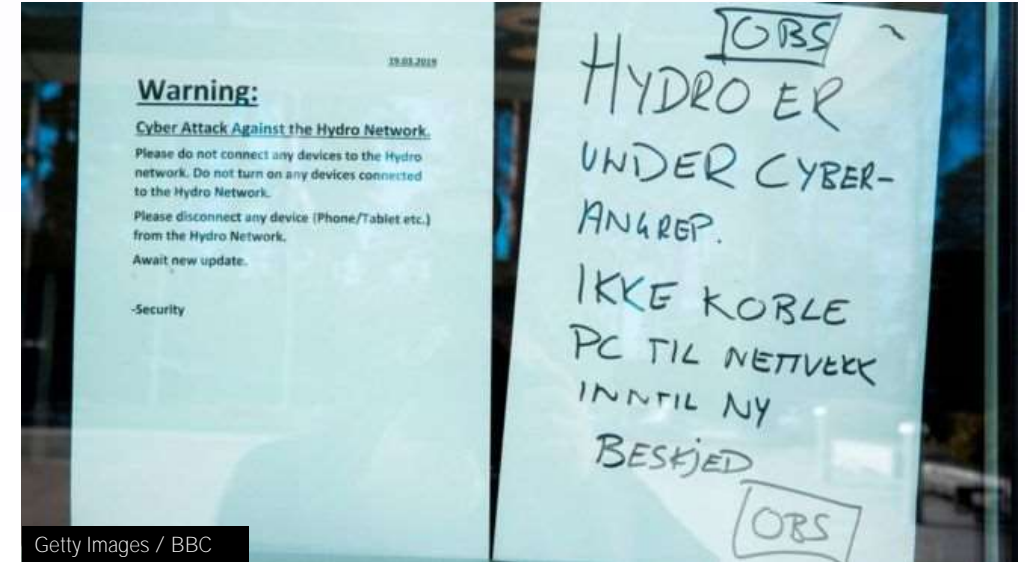 19.03.2019
Warning:
Cyber Attack Against the Hydro Network.
Please do not connect any devices to the Hydro
network. Do not turn on any devices connected
to the Hydro Network.
Please disconnect any device (Phone/Tablet etc.)
from the Hydro Network.
Await new update.
-Security
OBS
HYDRO ER
UNDER CYBER-
ANGREP.
IKKE KOBLE
PC TIL NETTVERK
INNTIL NY
BESKJED
OBS
Getty Images / BBC